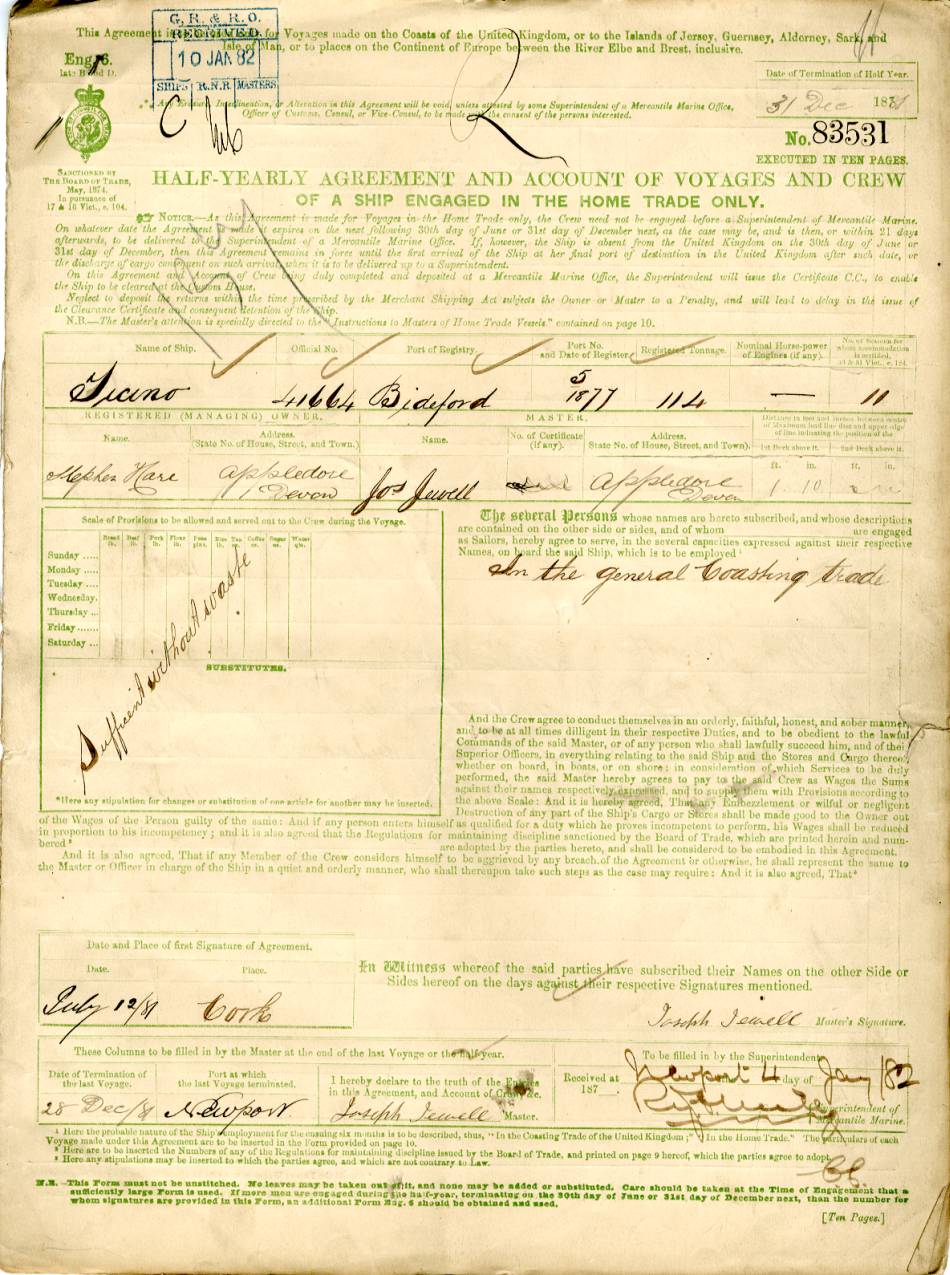 This Agreement is for Voyages made on the Coasts of the United Kingdom, or to the Islands of Jersey, Guernsey, Alderney, Sark, and
Isle of Man, or to places on the Continent of Europe between the River Elbe and Brest, inclusive.
G. R. & R. O.
RECEIVED
10 JAN 82
SHIPS R.N.R. MASTERS
Eng. 6.
late B and D.
Date of Termination of Half Year.
31 Dec 1881
*** Any Erasure, Interlineation, or Alteration in this Agreement will be void, unless attested by some Superintendent of a Mercantile Marine Office,
Officer of Customs, Consul, or Vice-Consul, to be made with the consent of the persons interested.
No. 83531
EXECUTED IN TEN PAGES.
SANCTIONED BY
THE BOARD OF TRADE,
May, 1874.
In pursuance of
17 & 18 Vict., c. 104.
HALF-YEARLY AGREEMENT AND ACCOUNT OF VOYAGES AND CREW
OF A SHIP ENGAGED IN THE HOME TRADE ONLY.
NOTICE.—As this Agreement is made for Voyages in the Home Trade only, the Crew need not be engaged before a Superintendent of Mercantile Marine.
On whatever date the Agreement is made it expires on the next following 30th day of June or 31st day of December next, as the case may be, and is then, or within 21 days
afterwards, to be delivered to the Superintendent of a Mercantile Marine Office. If, however, the Ship is absent from the United Kingdom on the 30th day of June or
31st day of December, then this Agreement remains in force until the first arrival of the Ship at her final port of destination in the United Kingdom after such date, or
the discharge of cargo consequent on such arrival, when it is to be delivered up to a Superintendent.
On this Agreement and Account of Crew being duly completed and deposited a Mercantile Marine Office, the Superintendent will issue the Certificate C.C., to enable
the Ship to be cleared at the Custom House.
Neglect to deposit the returns within the time prescribed by the Merchant Shipping Act subjects the Owner or Master to a Penalty, and will lead to delay in the issue of
the Clearance Certificate and consequent detention of the ship.
N.B.—The Master's attention is specially directed to the "Instructions to Masters of Home Trade Vessels" contained on page 10.
Name of Ship. Official No. Port of Registry. Port No. and Date of Register. Registered Tonnage. Nominal Horse-power of Engines (if any). No. of Seamen for whom accommodation is certified.
Ticino 41664 Bideford 5/1877 114 — 11
REGISTERED (MANAGING) OWNER. MASTER.
Name. Address. (State No. of House, Street, and Town.) Name. No. of Certificate (if any). Address. State No. of House, Street, and Town.) 1st Deck above it. 2nd Deck above it.
ft. in. ft. in.
Stephen Hare Appledore Devon Jos Jewell Appledore Devon 1 10
Scale of Provisions to be allowed and served out to the Crew during the Voyage.
Bread lb. Beef lb. Pork lb. Flour lb. Peas pint. Rice lb. Tea oz. Coffee oz. Sugar oz. Water qts.
Sunday
Monday
Tuesday
Wednesday.
Thursday
Friday
Saturday
Sufficent without waste
SUBSTITUTES.
*Here any stipulation for changes or substitution of one article for another may be inserted.
The several Persons whose names are hereto subscribed, and whose descriptions
are contained on the other side or sides, and of whom are engaged
as Sailors, hereby agree to serve, in the several capacities expressed against their respective
Names, on board the said Ship, which is to be employed¹
In the general Coasting trade
And the Crew agree to conduct themselves in an orderly, faithful, honest, and sober manner,
and to be at all times dilligent in their respective Duties, and to be obedient to the lawful
Commands of the said Master, or of any person who shall lawfully succeed him, and of their
Superior Officers, in everything relating to the said Ship and the Stores and Cargo thereof,
whether on board, in boats, or on shore: in consideration of which Services to be duly
performed, the said Master hereby agrees to pay to the said Crew as Wages the Sums
against their names respectively expressed, and to supply them with Provisions according to
the above Scale: And it is hereby agreed, That any Embezzlement or wilful or negligent
Destruction of any part of the Ship's Cargo or Stores shall be made good to the Owner out
of the Wages of the Person guilty of the same: And if any person enters himself as qualified for a duty which he proves incompetent to perform, his Wages shall be reduced
in proportion to his incompetency; and it is also agreed that the Regulations for maintaining discipline sanctioned by the Board of Trade, which are printed herein and num-
bered² are adopted by the parties hereto, and shall be considered to be embodied in this Agreement.
And it is also agreed, That if any Member of the Crew considers himself to be aggrieved by any breach of the Agreement or otherwise, he shall represent the same to
the Master or Officer in charge of the Ship in a quiet and orderly manner, who shall thereupon take such steps as the case may require: And it is also agreed, That³
Date and Place of first Signature of Agreement.
Date. Place.
July 12/81 Cork
In Witness whereof the said parties have subscribed their Names on the other Side or
Sides hereof on the days against their respective Signatures mentioned.
Joseph Jewell Master's Signature.
These Columns to be filled in by the Master at the end of the last Voyage or the half-year.
Date of Termination of the last Voyage. Port at which the last Voyage terminated.
28 Dec/81 Newport
I hereby declare to the truth of the Entries
in this Agreement, and Account of Crew &c.
Joseph Jewell Master.
To be filled in by the Superintendent
Received at Newport 4 day of Jany 1882
187
Superintendent of
Mercantile Marine.
¹ Here the probable nature of the Ship's employment for the ensuing six months is to be described, thus, "In the Coasting Trade of the United Kingdom;" "In the Home Trade." The particulars of each
Voyage made under this Agreement are to be inserted in the Form provided on page 10.
² Here are to be inserted the Numbers of any of the Regulations for maintaining discipline issued by the Board of Trade, and printed on page 9 hereof, which the parties agree to adopt.
³ Here any stipulations may be inserted to which the parties agree, and which are not contrary to Law.
N.B.—This Form must not be unstitched. No leaves may be taken out of it, and none may be added or substituted. Care should be taken at the Time of Engagement that a
sufficiently large Form is used. If more men are engaged during the half-year, terminating on the 30th day of June or 31st day of December next, than the number for
whom signatures are provided in this Form, an additional Form Eng. 6 should be obtained and used.
[Ten Pages.]